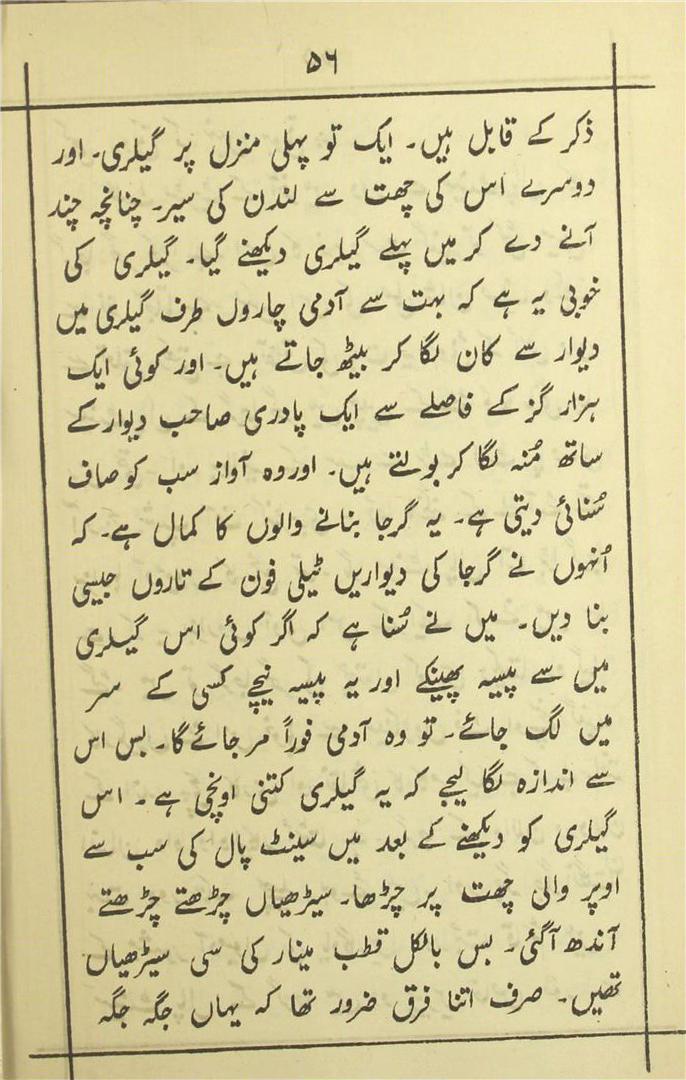 ۵۶
ذکر کے قابل ہیں۔ ایک تو پہلی منزل پر گیلری۔ اور
دوسرے اس کی چھت سے لندن کی سیر۔ چنانچہ چند
آنے دے کر میں پہلے گیلری دیکھنے گیا۔ گیلری کی
خوبی یہ ہے کہ بہت سے آدمی چاروں طرف گیلری میں
دیوار سے کان لگا کر بیٹھ جاتے ہیں۔ اور کوئی ایک
ہزار گز کے فاصلے سے ایک پادری صاحب دیوار کے
ساتھ مُنہ لگا کر بولتے ہیں۔ اور وہ آواز سب کو صاف
سُنائی دیتی ہے۔ یہ گرجا بنانے والوں کا کمال ہے۔ کہ
اُنہوں نے گرجا کی دیواریں ٹیلی فون کے تاروں جیسی
بنا دیں۔ میں نے سُنا ہے کہ اگر کوئی اس گیلری
میں سے پیسہ پھینکے اور یہ پیسہ نیچے کسی کے سر
میں لگ جائے۔ تو وہ آدمی فوراً مر جائے گا۔ بس اس
سے اندازہ لگا لیجے کہ یہ گیلری کتنی اونچی ہے۔ اس
گیلری کو دیکھنے کے بعد میں سینٹ پال کی سب سے
اوپر والی چھت پر چڑھا۔ سیڑھیاں چڑھتے چڑھتے
آندھ آگئی۔ بس بالکل قطب مینار کی سی سیڑھیاں
تھیں۔ صرف اتنا فرق ضرور تھا کہ یہاں جگہ جگہ